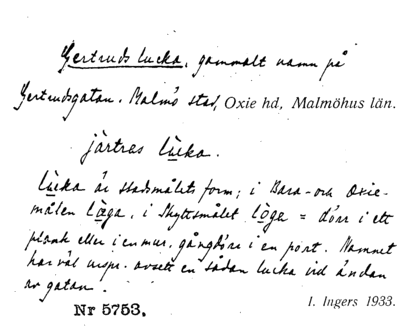 Gertruds lucka, gammalt namn på
Gertrudsgatan. Malmö stad, Oxie hd, Malmöhus län.
järtres lucka.
lucka är stadsmålets form; i Bara- och Oxie-
målen lœga, i Skyttsmålet lōga = dörr i ett
plank eller i en mur, gångdörr i en port. Namnet
har väl urspr. avsett en sådan lucka vid ändan
av gatan.
Nr 5753.
I. Ingers 1933.